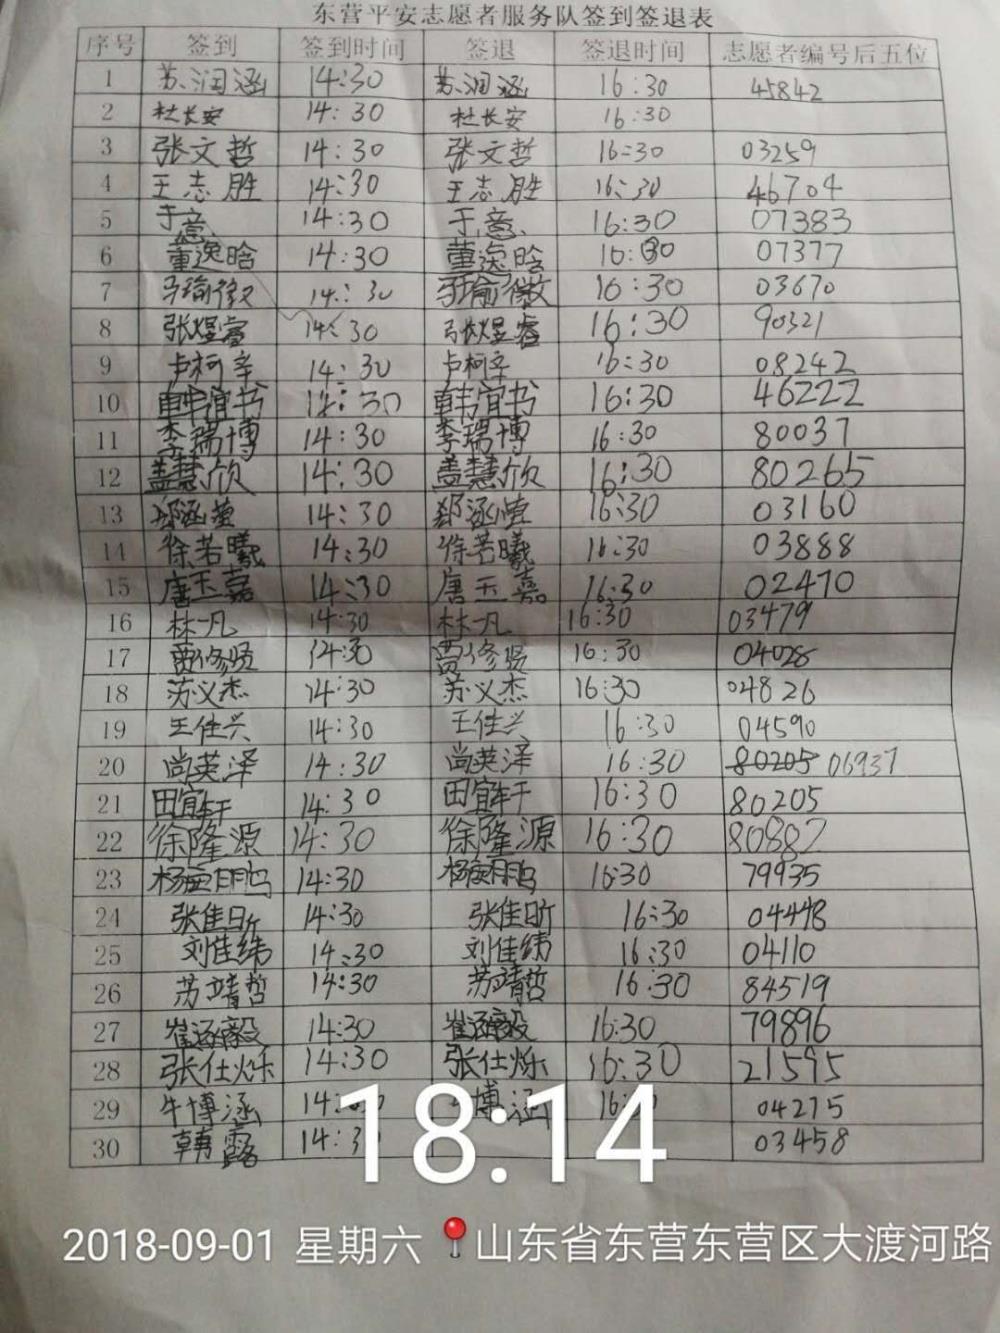 东营平安志愿者服务队签到签退表
序号 签到 签到时间 签退 签退时间 志愿者编号后五位
1 苏润涵 14:30 苏润涵 16:30 45842
2 杜长安 14:30 杜长安 16:30
3 张文哲 14:30 张文哲 16:30 03259
4 王志胜 14:30 王志胜 16:30 46704
5 于意 14:30 于意 16:30 07383
6 董逸晗 14:30 董逸晗 16:30 07377
7 14:30 16:30 03670
8 张煜睿 14:30 张煜睿 16:30 90321
9 卢柯辛 14:30 卢柯辛 16:30 08242
10 韩谊书 14:30 韩谊书 16:30 46222
11 李瑞博 14:30 李瑞博 16:30 80037
12 盖慧欣 14:30 盖慧欣 16:30 80265
13 14:30 16:30 03160
14 徐若曦 14:30 徐若曦 16:30 03888
15 唐玉嘉 14:30 唐玉嘉 16:30 02470
16 林一凡 14:30 林一凡 16:30 03479
17 贾修贤 14:30 贾修贤 16:30 04028
18 苏义杰 14:30 苏义杰 16:30 04826
19 王佳兴 14:30 王佳兴 16:30 04590
20 尚英泽 14:30 尚英泽 16:30 80205 06937
21 田宜轩 14:30 田宜轩 16:30 80205
22 徐隆源 14:30 徐隆源 16:30 80887
23 14:30 16:30 79935
24 张佳昕 14:30 张佳昕 16:30 04498
25 刘佳纬 14:30 刘佳纬 16:30 04110
26 苏靖哲 14:30 苏靖哲 16:30 84519
27 崔涵毅 14:30 崔涵毅 16:30 79896
28 张仕烁 14:30 张仕烁 16:30 21595
29 牛博涵 14:30 牛博涵 16: 04275
30 韩露 14:3 03458
18:14
2018-09-01 星期六 山东省东营东营区大渡河路